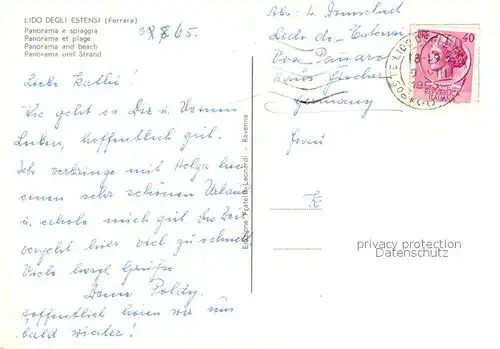 LIDO DEGLI ESTENSI (Ferrara)
Panorama e spiaggia
Panorama et plage
Panorama and beach
Panorama und Strand
8.65.
Liebe Kathi!
Wie geht es Dir u. Deinen
Lieben, hoffentlich gut.
Ich verbringe mit Helga hier
einen sehr schönen Urlaub
u. erhole mich gut. Die Zeit
vergeht hier viel zu schnell
Viele herzl. Grüße
Deine Poldy.
Hoffentlich hören wir uns
bald wieder!
Edizione Fratelli Leonardi - Ravenna
Abs: L.
Lido de Estensi
Haus Fischer
Germany
Frau
40
POSTE
ITALIANE
privacy protection
AKPOOL.DE